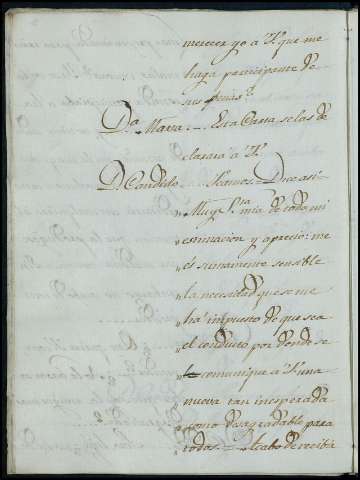 merecer yo a V. que me
haga participante de
sus penas?
Dª Maria... Esta Carta, se las de
clarará à V.
D. Candido. Veamos. Dice asi
"Muy Sra. mia de todo mi
"estimacion y aprecio: me
"és sumamente sensible
"la necesidad que se me
"há impuesto de que sea
"el conducto por donde se
"le comunique a V. una
"nueva tan inesperada
"como desagradable para
"todos. Acabo de recibir